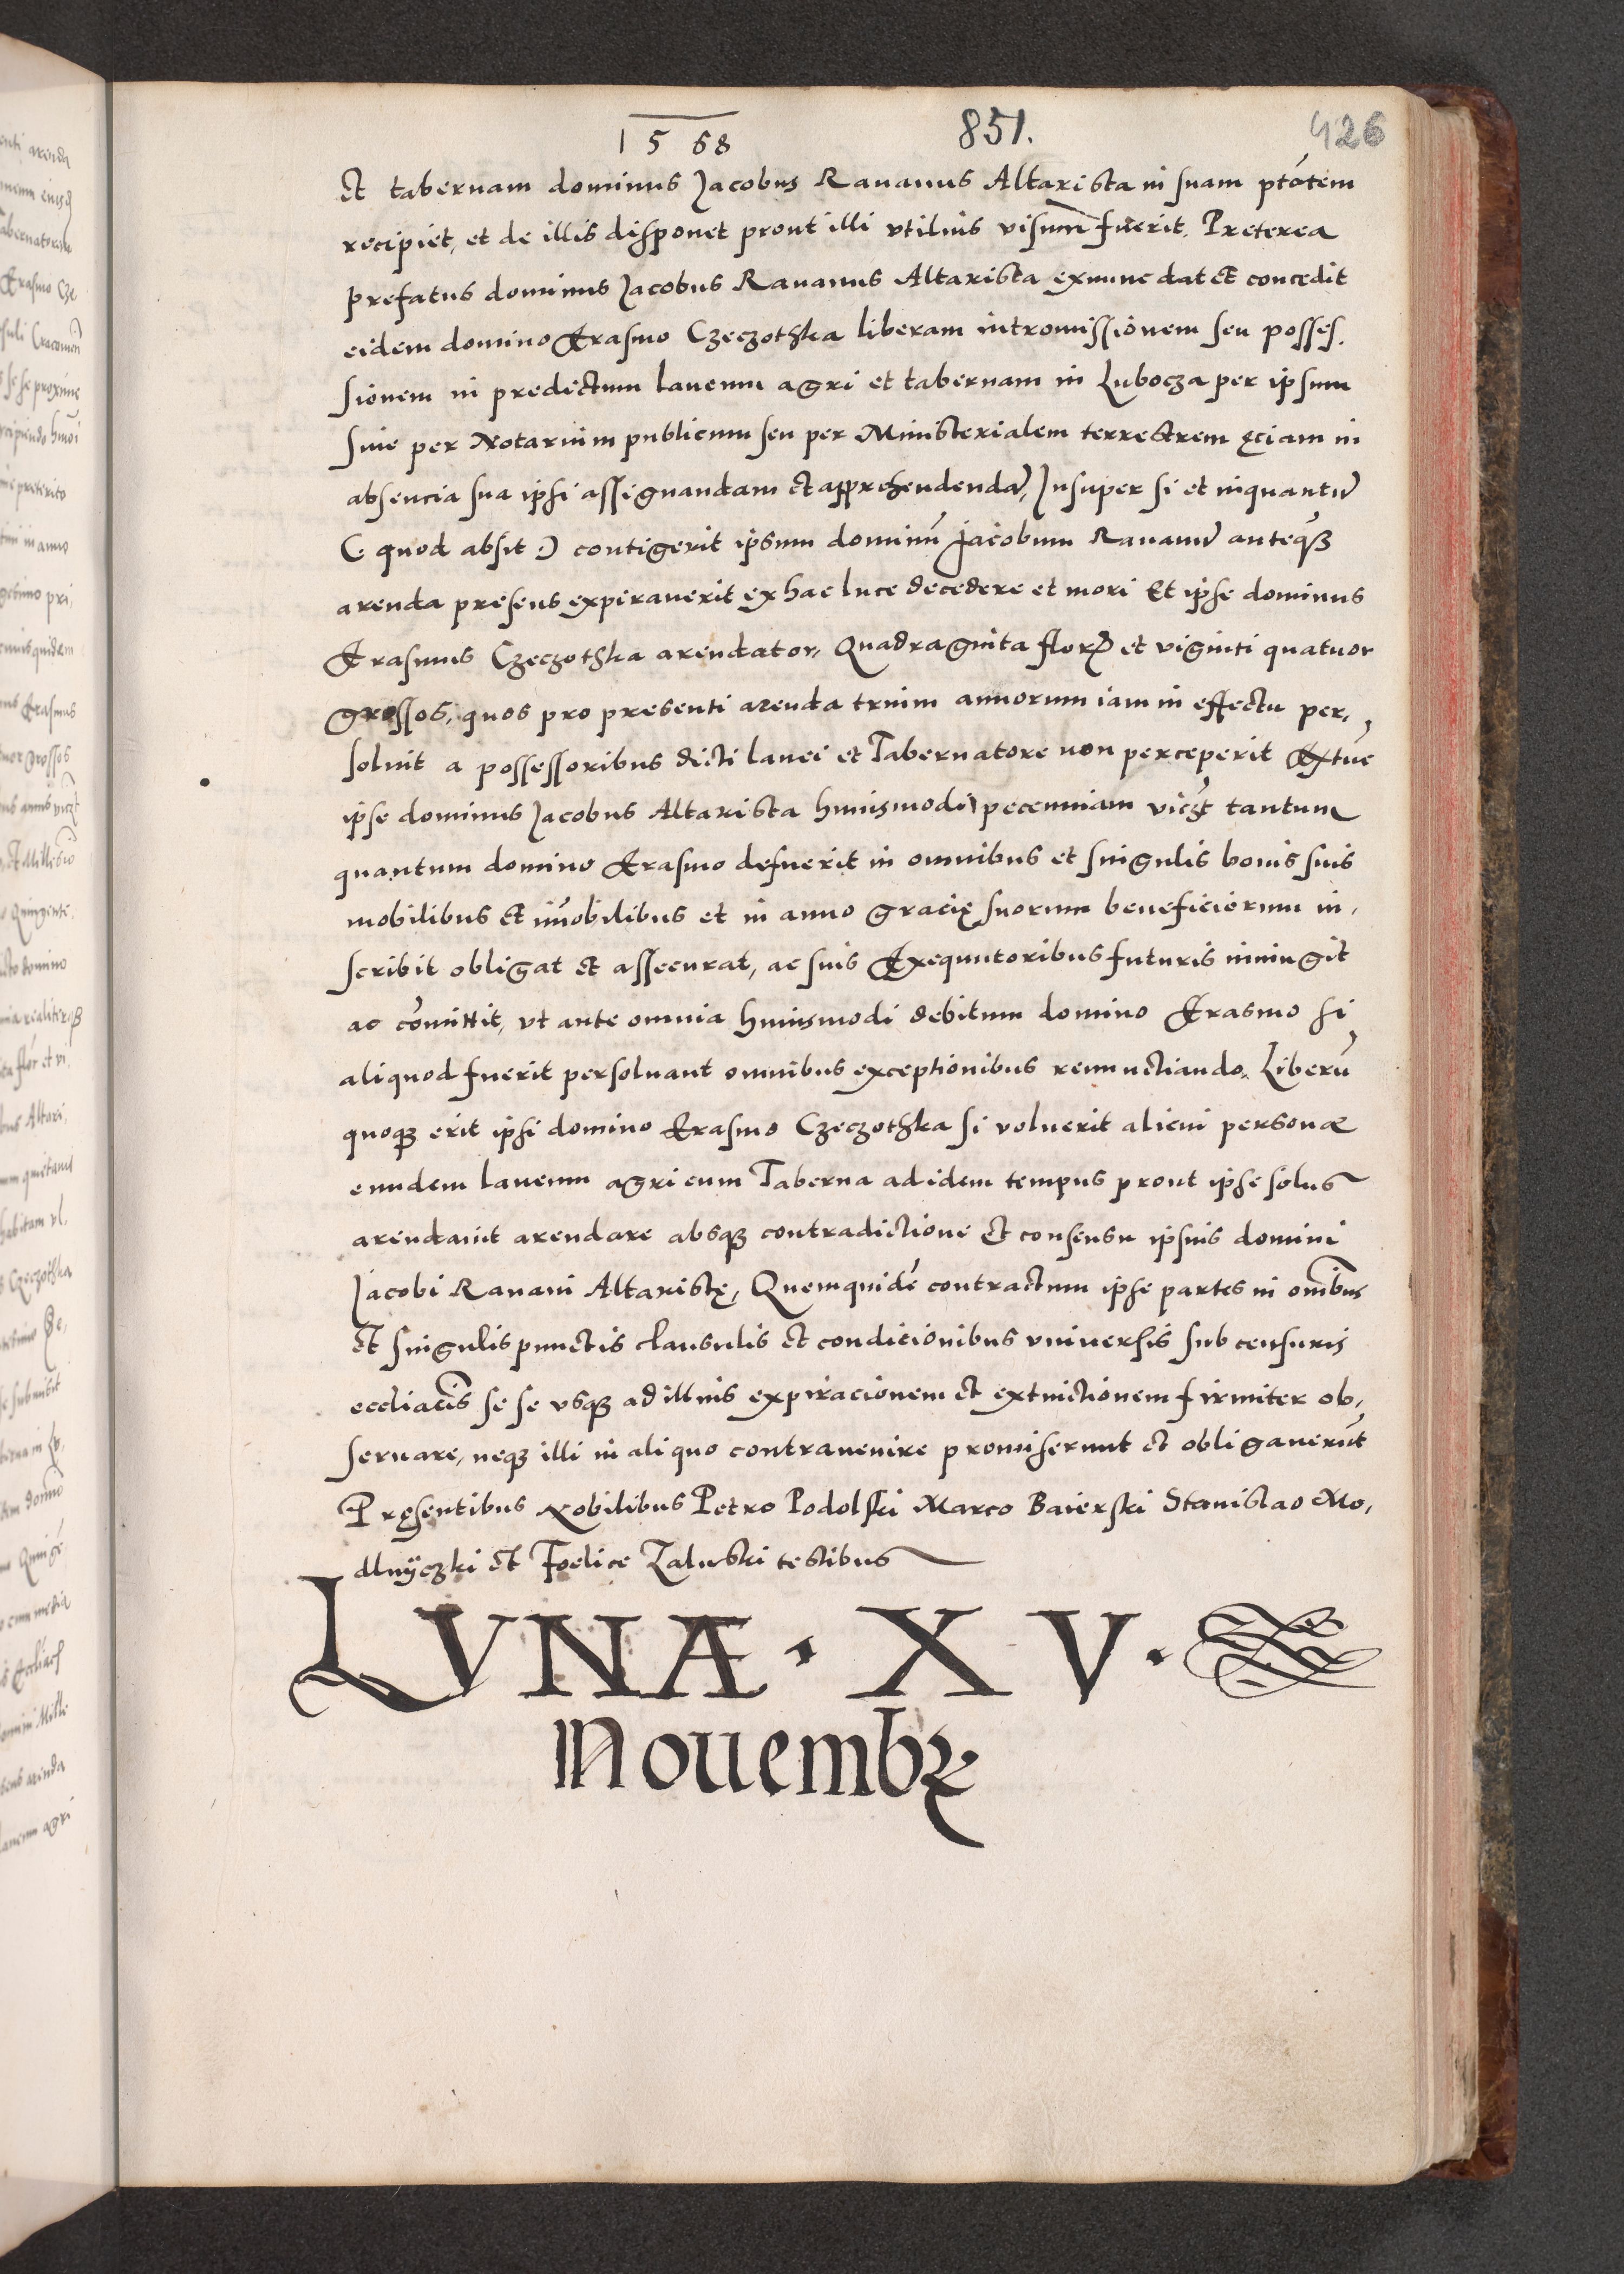 1568 851. 426
Et tabernam dominus Jacobus Rauanus Altarista in suam ptãtem
recipiet, et de illis disponet prout illi vtilius visum fuerit. Preterea
prefatus dominus Jacobus Rauanus Altarista exnunc dat et concedit
eidem domino Erasmo Czeczothka liberam intromissionem seu posses,
sionem in predictum laneum agri et tabernam in Lubocza per ipsum
siue per Notarium publicum seu per Ministerialem terrestrem eciam in
absencia sua ipsi assignandam et apprehendendã, Insuper si et inquantũ
(. quod absit .) contigerit ipsum dominũ Jacobum Rauanũ anteqȝ
arenda presens expirauerit ex hac luce decedere et mori Et ipse dominus
Erasmus Czeczothka arendator, Quadraginta flor et viginti quatuor
grossos, quos pro presenti arenda trium annorum iam in effectu per,
soluit a possessoribus dicti lanei et Tabernatore non perceperit Extũc
ipse dominus Jacobus Altarista huiusmodi pecenniam viczt tantum
quantum domino Erasmo defuerit in omnibus et singulis bonis suis
mobilibus et imobilibus et in anno gracię suorum beneficiorum in,
scribit obligat et assecurat, ac suis Exequutoribus futuris iniungit
ac cõmittit, vt ante omnia huiusmodi debitum domino Erasmo si
aliquod fuerit persoluant omnibus exceptionibus renunctiando. Liberũ
quoqȝ erit ipsi domino Erasmo Czeczothka si voluerit alicui personæ
eundem laneum agri cum Taberna ad idem tempus prout ipse solus
arendauit arendare absqȝ contradictione et consensu ipsius domini
Jacobi Rauani Altaristę, Quemquidẽ contractum ipse partes in om̃ibus
Et singulis punctis clausulis et condicionibus vniuersis sub censuris
eccliacis se se vsqȝ ad illius expiracionem et extinctionem firmiter ob,
seruare, neqȝ illi in aliquo contrauenire promiserunt et obligauerũt
Pręsentibus Nobilibus Petro Podolski Marco Baierski Stanislao Mo,
dlnÿczki et Foelice Zaluski testibus
LVNÆ · XV ·
Nouembꝶ